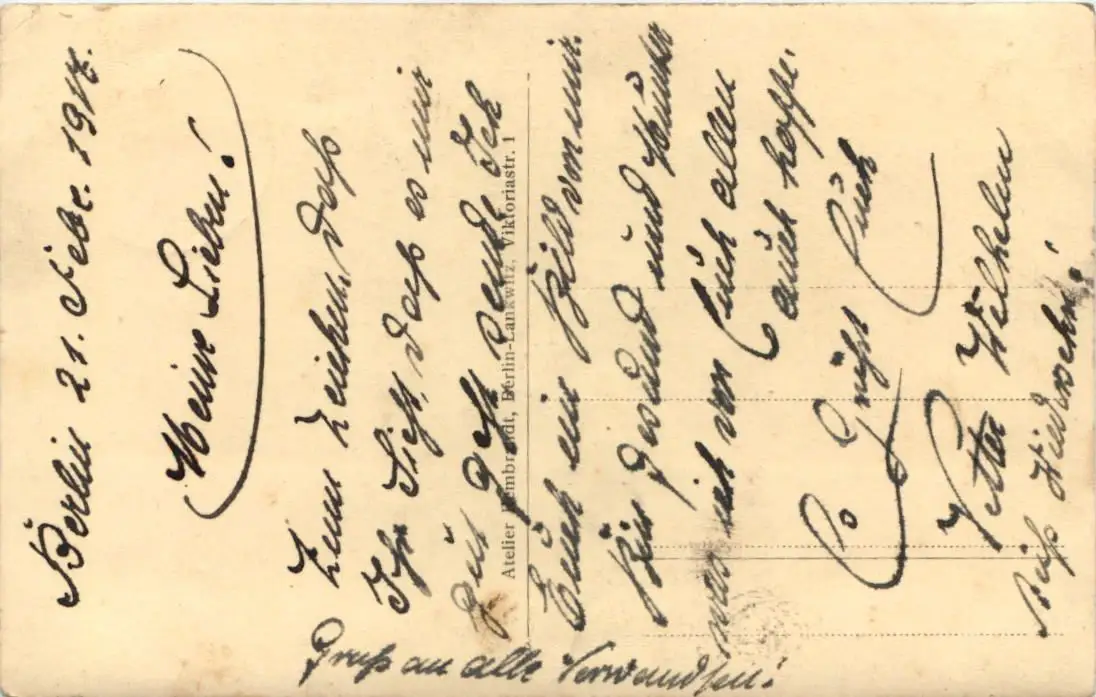 Berlin 21. Febr. 1917.
Meine Lieben!
Zum Zeichen, daß
Ihr Seht, daß es mir
gut geht sende Ich
Euch ein Bild von mir.
Bin gesund und munter
was ich von Euch allen
auch hoffe.
Es grüßt Euch
Vetter Wilhelm
Auf Wiedersehn!
Gruß an alle Verwandten!
Atelier Rembrandt, Berlin-Lankwitz, Viktoriastr. 1